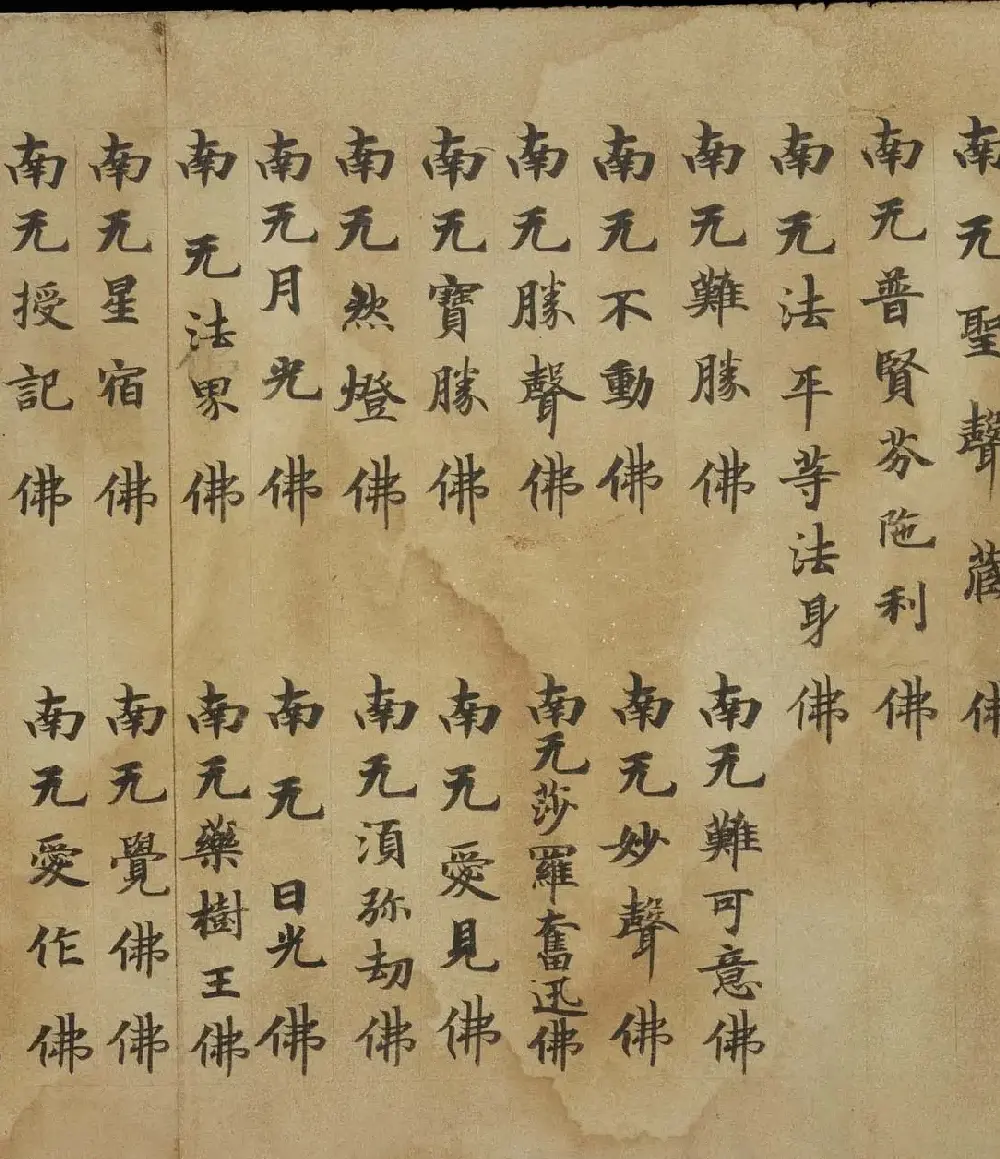 南无聖聲藏佛
南无普賢芬陁利佛
南无法平等法身佛
南无難勝佛 南无難可意佛
南无不動佛 南无妙聲佛
南无勝聲佛 南无莎羅奮迅佛
南无寶勝佛 南无愛見佛
南无然燈佛 南无湏弥劫佛
南无月光佛 南无日光佛
南无法界佛 南无藥樹王佛
南无星宿佛 南无覺佛佛
南无授記佛 南无愛作佛